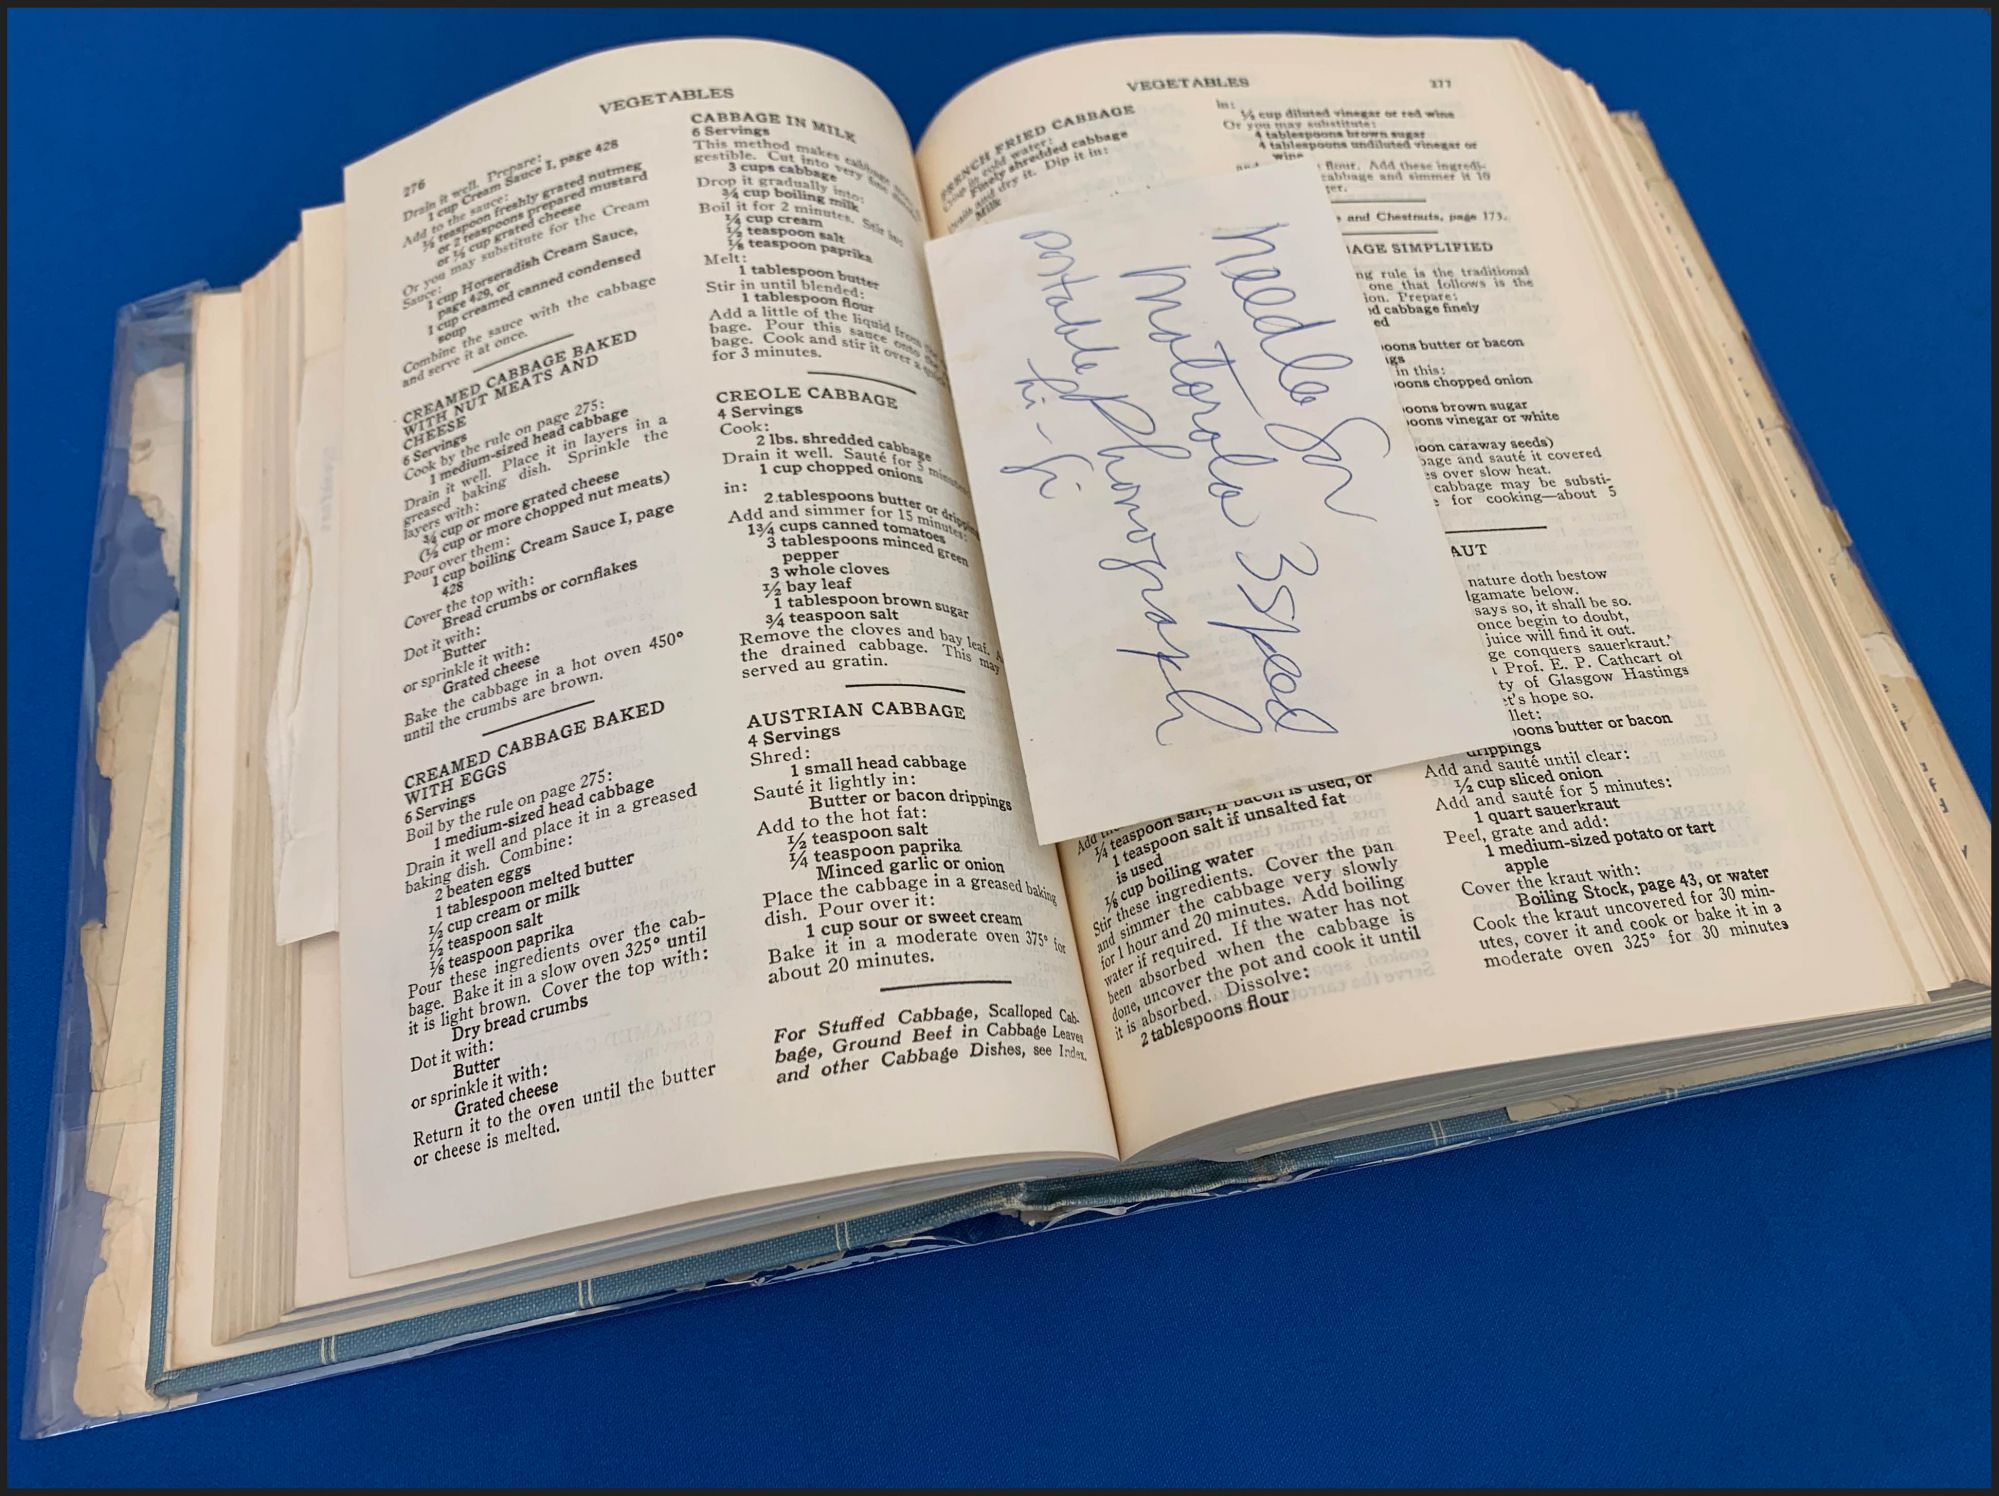 276
VEGETABLES
Drain it well. Prepare:
1 cup Cream Sauce I, page 428
Add to the sauce:
⅛ teaspoon freshly grated nutmeg
or 2 teaspoons prepared mustard
or ½ cup grated cheese
Or you may substitute for the Cream
Sauce:
1 cup Horseradish Cream Sauce,
page 429, or
1 cup creamed canned condensed
soup
Combine the sauce with the cabbage
and serve it at once.
CREAMED CABBAGE BAKED
WITH NUT MEATS AND
CHEESE
6 Servings
Cook by the rule on page 275:
1 medium-sized head cabbage
Drain it well. Place it in layers in a
greased baking dish. Sprinkle the
layers with:
¾ cup or more grated cheese
(½ cup or more chopped nut meats)
Pour over them:
1 cup boiling Cream Sauce I, page
428
Cover the top with:
Bread crumbs or cornflakes
Dot it with:
Butter
or sprinkle it with:
Grated cheese
Bake the cabbage in a hot oven 450°
until the crumbs are brown.
CREAMED CABBAGE BAKED
WITH EGGS
6 Servings
Boil by the rule on page 275:
1 medium-sized head cabbage
Drain it well and place it in a greased
baking dish. Combine:
2 beaten eggs
1 tablespoon melted butter
½ cup cream or milk
½ teaspoon salt
⅛ teaspoon paprika
Pour these ingredients over the cab-
bage. Bake it in a slow oven 325° until
it is light brown. Cover the top with:
Dry bread crumbs
Dot it with:
Butter
or sprinkle it with:
Grated cheese
Return it to the oven until the butter
or cheese is melted.
CABBAGE IN MILK
6 Servings
This method makes cabbage
gestible. Cut into very fine
3 cups cabbage
Drop it gradually into:
¾ cup boiling milk
Boil it for 2 minutes. Stir in:
¼ cup cream
½ teaspoon salt
⅛ teaspoon paprika
Melt:
1 tablespoon butter
Stir in until blended:
1 tablespoon flour
Add a little of the liquid from the
bage. Pour this sauce onto the
bage. Cook and stir it over a
for 3 minutes.
CREOLE CABBAGE
4 Servings
Cook:
2 lbs. shredded cabbage
Drain it well. Sauté for 5 minutes:
1 cup chopped onions
in:
2 tablespoons butter or
Add and simmer for 15 minutes:
1¾ cups canned tomatoes
3 tablespoons minced green
pepper
3 whole cloves
½ bay leaf
1 tablespoon brown sugar
¾ teaspoon salt
Remove the cloves and bay leaf.
the drained cabbage. This may
served au gratin.
AUSTRIAN CABBAGE
4 Servings
Shred:
1 small head cabbage
Sauté it lightly in:
Butter or bacon drippings
Add to the hot fat:
½ teaspoon salt
¼ teaspoon paprika
Minced garlic or onion
Place the cabbage in a greased baking
dish. Pour over it:
1 cup sour or sweet cream
Bake it in a moderate oven 375° for
about 20 minutes.
For Stuffed Cabbage, Scalloped Cab-
bage, Ground Beef in Cabbage Leaves
and other Cabbage Dishes, see Index.
VEGETABLES
277
FRENCH FRIED CABBAGE
Crisp in cold water:
Finely shredded cabbage
Drain and dry it. Dip it in:
Milk
needle for
Motorola 3 speed
portable Phonograph
hi-fi
¼ teaspoon salt, if bacon is used, or
1 teaspoon salt if unsalted fat
is used
⅛ cup boiling water
Stir these ingredients. Cover the pan
and simmer the cabbage very slowly
for 1 hour and 20 minutes. Add boiling
water if required. If the water has not
been absorbed when the cabbage is
done, uncover the pot and cook it until
it is absorbed. Dissolve:
2 tablespoons flour
in:
¼ cup diluted vinegar or red wine
Or you may substitute:
4 tablespoons brown sugar
4 tablespoons undiluted vinegar or
wine
flour. Add these ingredi-
cabbage and simmer it 10
and Chestnuts, page 173.
SIMPLIFIED
rule is the traditional
one that follows is the
Prepare:
cabbage finely
butter or bacon
in this:
chopped onion
brown sugar
vinegar or white
caraway seeds)
and sauté it covered
over slow heat.
cabbage may be substi-
for cooking—about 5
nature doth bestow
below.
says so, it shall be so.
once begin to doubt,
juice will find it out.
conquers sauerkraut.'
Prof. E. P. Cathcart of
of Glasgow Hastings
hope so.
butter or bacon
drippings
Add and sauté until clear:
½ cup sliced onion
Add and sauté for 5 minutes:
1 quart sauerkraut
Peel, grate and add:
1 medium-sized potato or tart
apple
Cover the kraut with:
Boiling Stock, page 43, or water
Cook the kraut uncovered for 30 min-
utes, cover it and cook or bake it in a
moderate oven 325° for 30 minutes